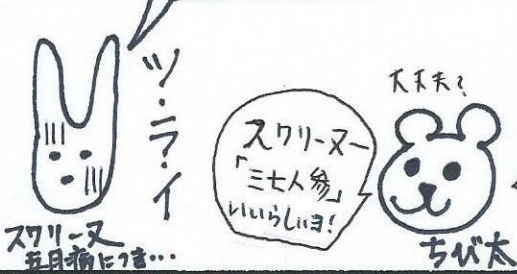 ツ・ラ・イ
スクリーヌ
五月病につき…
大丈夫?
スクリーヌー
「三七人参」
いいらしいヨ!
ちび太